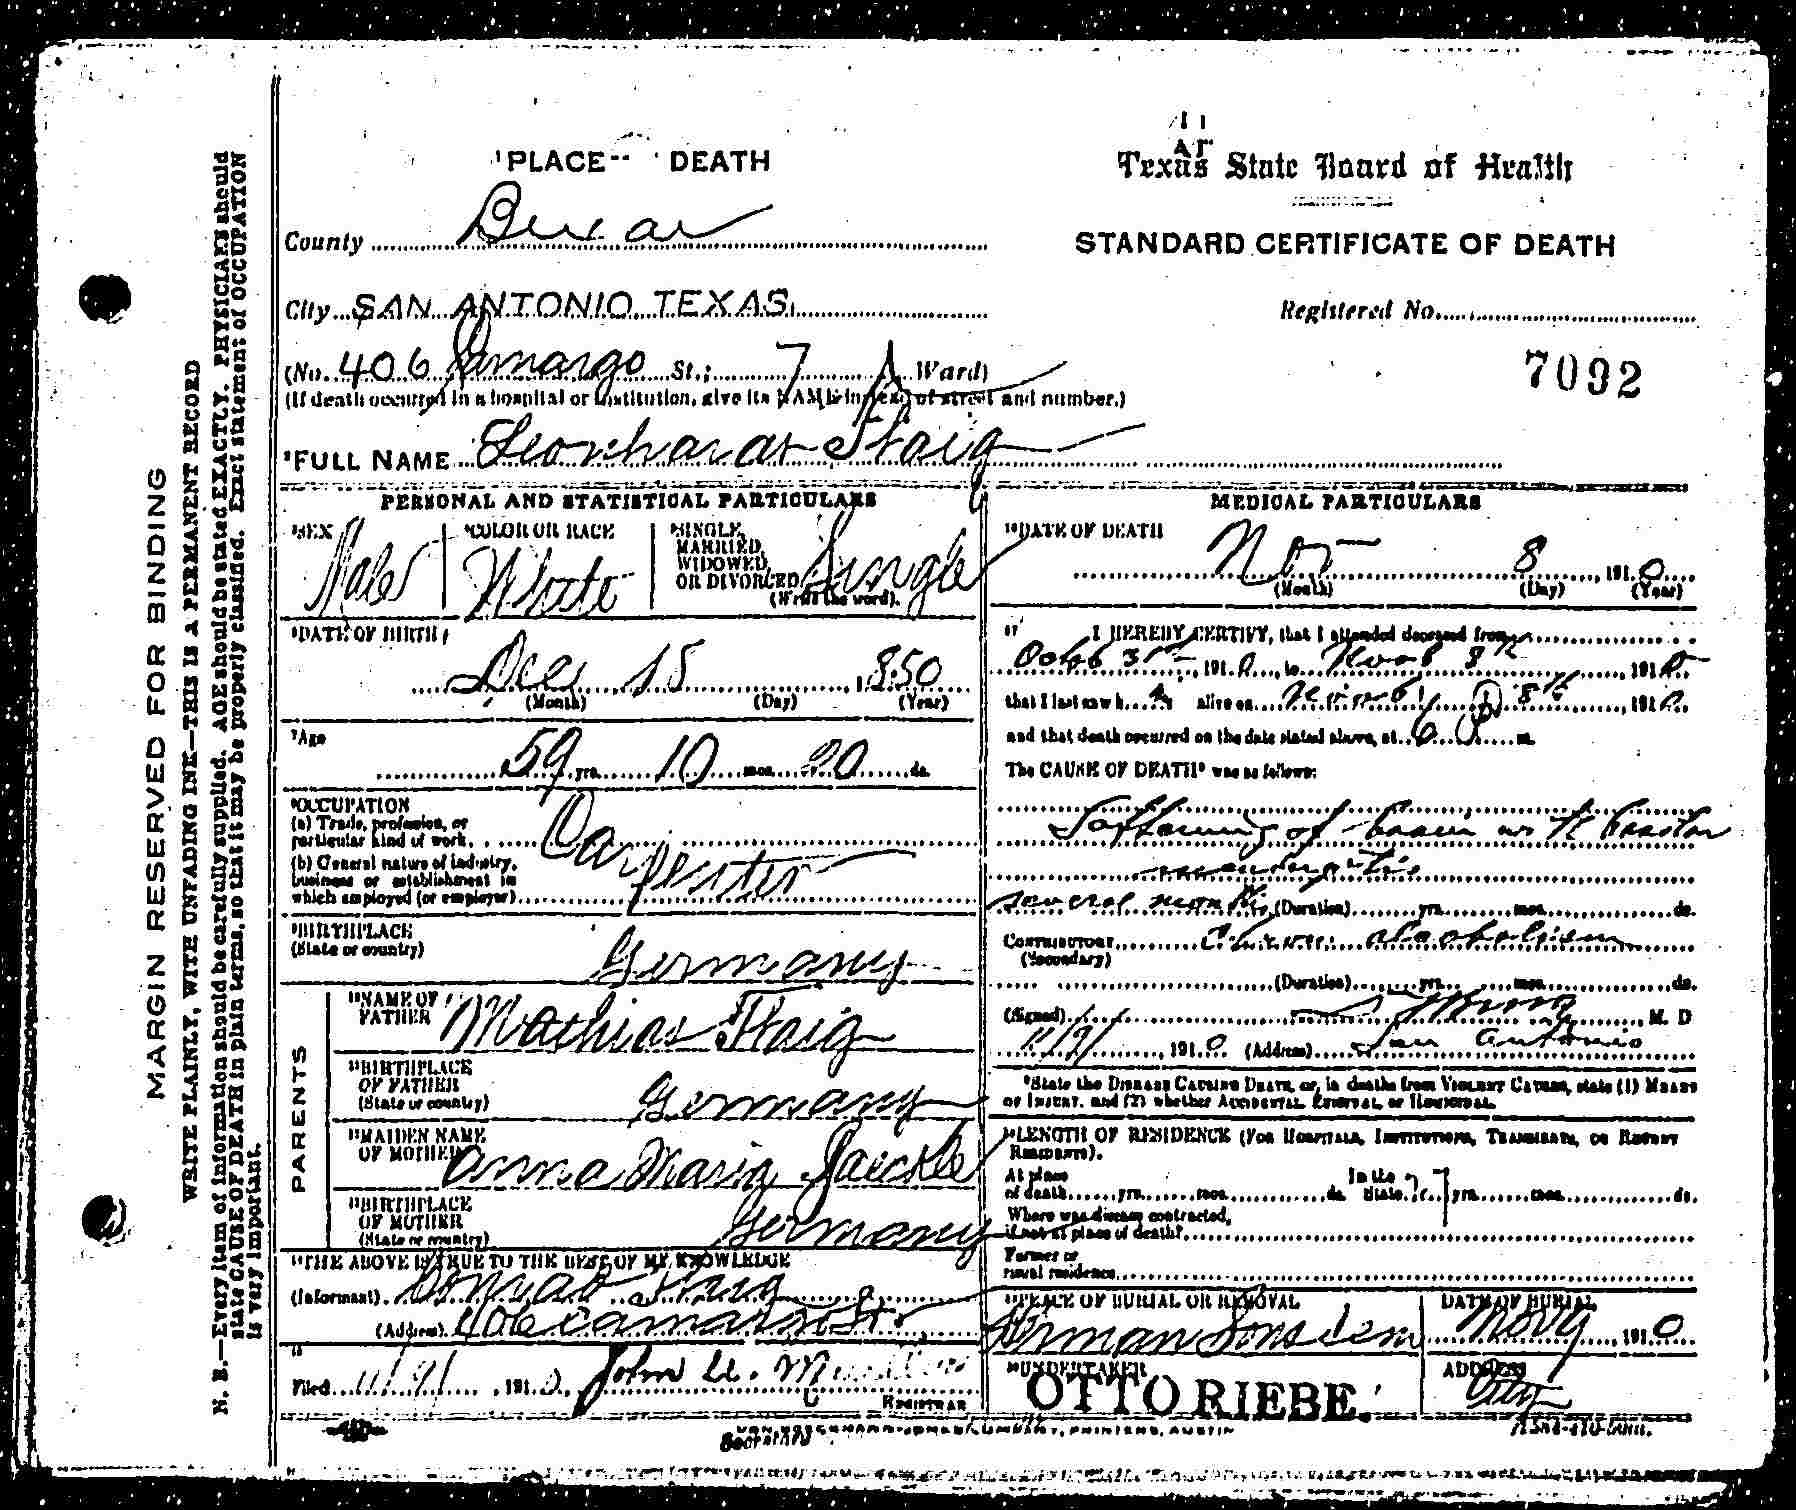 MARGIN RESERVED FOR BINDING
WRITE PLAINLY, WITH UNFADING INK—THIS IS A PERMANENT RECORD
N. B.—Every item of information should be carefully supplied. AGE should be stated EXACTLY. PHYSICIANS should
state CAUSE OF DEATH in plain terms, so that it may be properly classified. Exact statement of OCCUPATION
is very important.
PLACE DEATH
Texas State Board of Health
County Bexar
STANDARD CERTIFICATE OF DEATH
City SAN ANTONIO TEXAS
Registered No.
(No. 406 Camargo St.; 7 Ward)
7092
(If death occurred in a hospital or institution, give its NAME instead of street and number.)
FULL NAME Leonhardt Staig
PERSONAL AND STATISTICAL PARTICULARS
SEX Male
COLOR OR RACE White
SINGLE, MARRIED, WIDOWED, OR DIVORCED (Write the word). Single
DATE OF BIRTH
Dec 15, 1850
(Month) (Day) (Year)
Age
59 yrs. 10 mos. 20 ds.
OCCUPATION
(a) Trade, profession, or particular kind of work. Carpenter
(b) General nature of industry, business or establishment in which employed (or employer)
BIRTHPLACE (State or country) Germany
PARENTS
NAME OF FATHER Mathias Staig
BIRTHPLACE OF FATHER (State or country) Germany
MAIDEN NAME OF MOTHER Anna Maria Jaeckle
BIRTHPLACE OF MOTHER (State or country) Germany
THE ABOVE IS TRUE TO THE BEST OF MY KNOWLEDGE
(Informant) Conrad Staig
(Address) 406 Camargo St.
Filed 11/9/, 1910, John U.
REGISTRAR
MEDICAL PARTICULARS
DATE OF DEATH
Nov 8, 1910
(Month) (Day) (Year)
17 I HEREBY CERTIFY, that I attended deceased from
Octob 31st, 1910, to Novb 8th, 1910
that I last saw h alive on Novemb 8th, 1910
and that death occurred on the date stated above, at 6 P m.
The CAUSE OF DEATH* was as follows:
Softening of brain with
several months (Duration) yrs. mos. ds.
CONTRIBUTORY Chron. alcoholism
(Secondary)
(Duration) yrs. mos. ds.
(Signed) M. D
11/9/, 1910 (Address) San Antonio
*State the DISEASE CAUSING DEATH, or, in deaths from VIOLENT CAUSES, state (1) MEANS
OF INJURY, and (2) whether ACCIDENTAL, SUICIDAL, or HOMICIDAL.
LENGTH OF RESIDENCE (FOR HOSPITALS, INSTITUTIONS, TRANSIENTS, OR RECENT
RESIDENTS).
At place of death yrs. mos. ds. In the State yrs. mos. ds.
Where was disease contracted,
if not at place of death?
Former or
usual residence
PLACE OF BURIAL OR REMOVAL
Herman Sons Cem
DATE OF BURIAL
Nov 9, 1910
UNDERTAKER
OTTO RIEBE.
ADDRESS
City